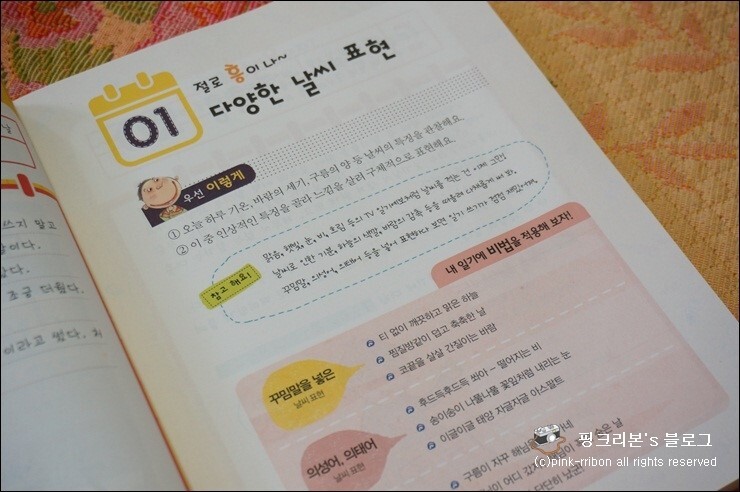 01
절로 흥이 나~
다양한 날씨 표현
우선 이렇게
① 오늘 하루 기온, 바람의 세기, 구름의 양 등 날씨의 특징을 관찰해요.
② 이 중 인상적인 특징을 골라 느낌을 살려 구체적으로 표현해요.
참고 해요!
맑음, 햇빛, 눈, 비, 흐림 등의 TV 일기예보처럼 날씨를 적는 건 이제 그만!
날씨로 인한 기분, 하늘의 색깔, 바람의 감촉 등을 떠올려 다채롭게 써 봐.
꾸밈말, 의성어, 의태어 등을 넣어 표현하다 보면 일기 쓰기가 점점 재밌어져.
내 일기에 비법을 적용해 보자!
꾸밈말을 넣은
날씨 표현
티 없이 깨끗하고 맑은 하늘
찜질방같이 덥고 축축한 날
코끝을 살살 간질이는 바람
의성어, 의태어
날씨 표현
후드득후드득 쏴아 - 떨어지는 비
송이송이 나풀나풀 꽃잎처럼 내리는 눈
이글이글 태양 자글자글 아스팔트
구름이 자꾸 해님을
쓰지 말고
조금 더웠다.
이라고 썼다. 치
핑크리본's 블로그
(c)pink-rribon all rights reserved